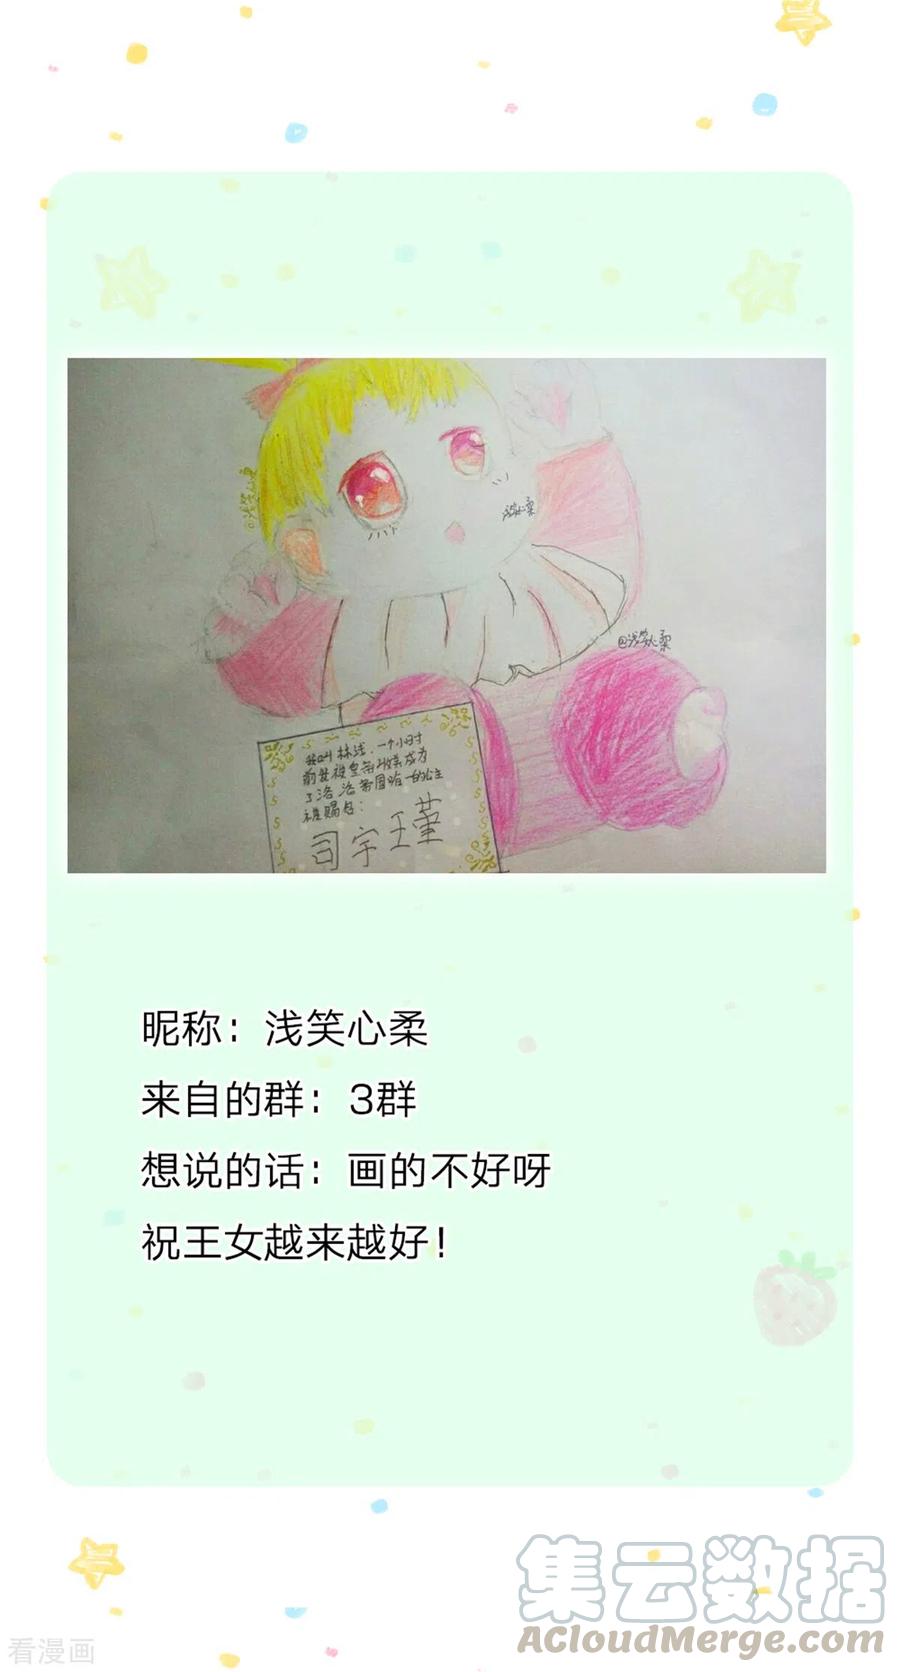 @浅笑心柔
浅笑心柔
@浅笑心柔
我叫林浅，一个小时
前我被皇帝收养成为
了洛洛帝国唯一的公主
被赐名：
司宇王堇
昵称：浅笑心柔
来自的群：3群
想说的话：画的不好呀
祝王女越来越好！
集云数据
ACloudMerge.com
看漫画